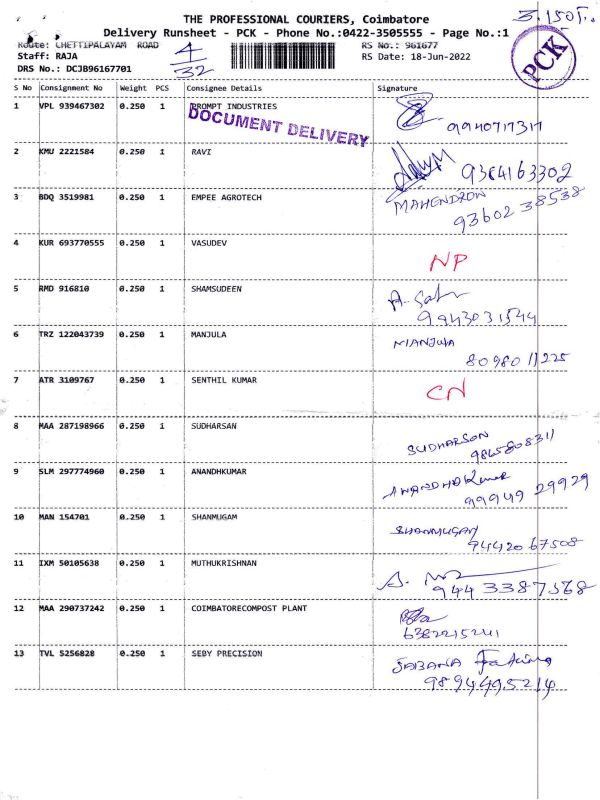 THE PROFESSIONAL COURIERS, Coimbatore
Delivery Runsheet - PCK - Phone No.:0422-3505555 - Page No.:1
Route: CHETTIPALAYAM ROAD
RS No.: 961677
Staff: RAJA
RS Date: 18-Jun-2022
DRS No.: DCJB96167701
4/32
PCK
S No Consignment No Weight PCS Consignee Details Signature
1 VPL 939467302 0.250 1 PROMPT INDUSTRIES
DOCUMENT DELIVERY
9940717317
2 KMU 2221584 0.250 1 RAVI 9364163302
3 BDQ 3519981 0.250 1 EMPEE AGROTECH MAHENDRON
93602 38538
4 KUR 693770555 0.250 1 VASUDEV NP
5 RMD 916810 0.250 1 SHAMSUDEEN
9943031544
6 TRZ 122043739 0.250 1 MANJULA MANJULA
80980 11225
7 ATR 3109767 0.250 1 SENTHIL KUMAR CN
8 MAA 287198966 0.250 1 SUDHARSAN SUDHARSON
9865808311
9 SLM 297774960 0.250 1 ANANDHKUMAR ANANDHA Kumar
99949 29929
10 MAN 154701 0.250 1 SHANMUGAM SHANMUGAM
94420 67508
11 IXM 50105638 0.250 1 MUTHUKRISHNAN
944 3387568
12 MAA 290737242 0.250 1 COIMBATORECOMPOST PLANT
6382215241
13 TVL 5256828 0.250 1 SEBY PRECISION SABANA Fathima
9894495214